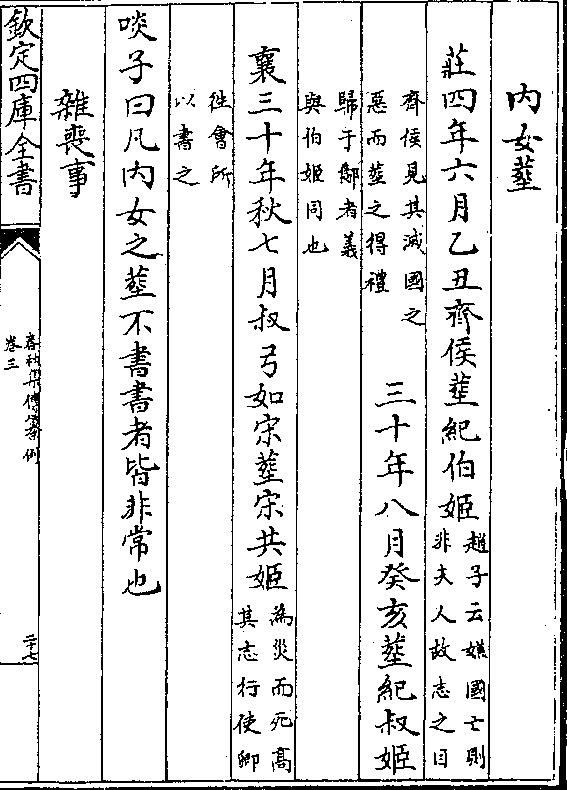 内女塟
莊四年六月乙丑齊侯塟紀伯姬
趙子云嫌國亡則
非夫人故志之目
齊侯見其滅國之
惡而塟之得禮
三十年八月癸亥塟紀叔姬
歸于酅者義
與伯姬同也
襄三十年秋七月叔弓如宋塟宋共姬
為災而死髙
其志行使卿
徃會所
以書之
啖子曰凡内女之塟不書書者皆非常也
雜喪事
欽定四庫全書
春秋集傳纂例
卷三
二十七